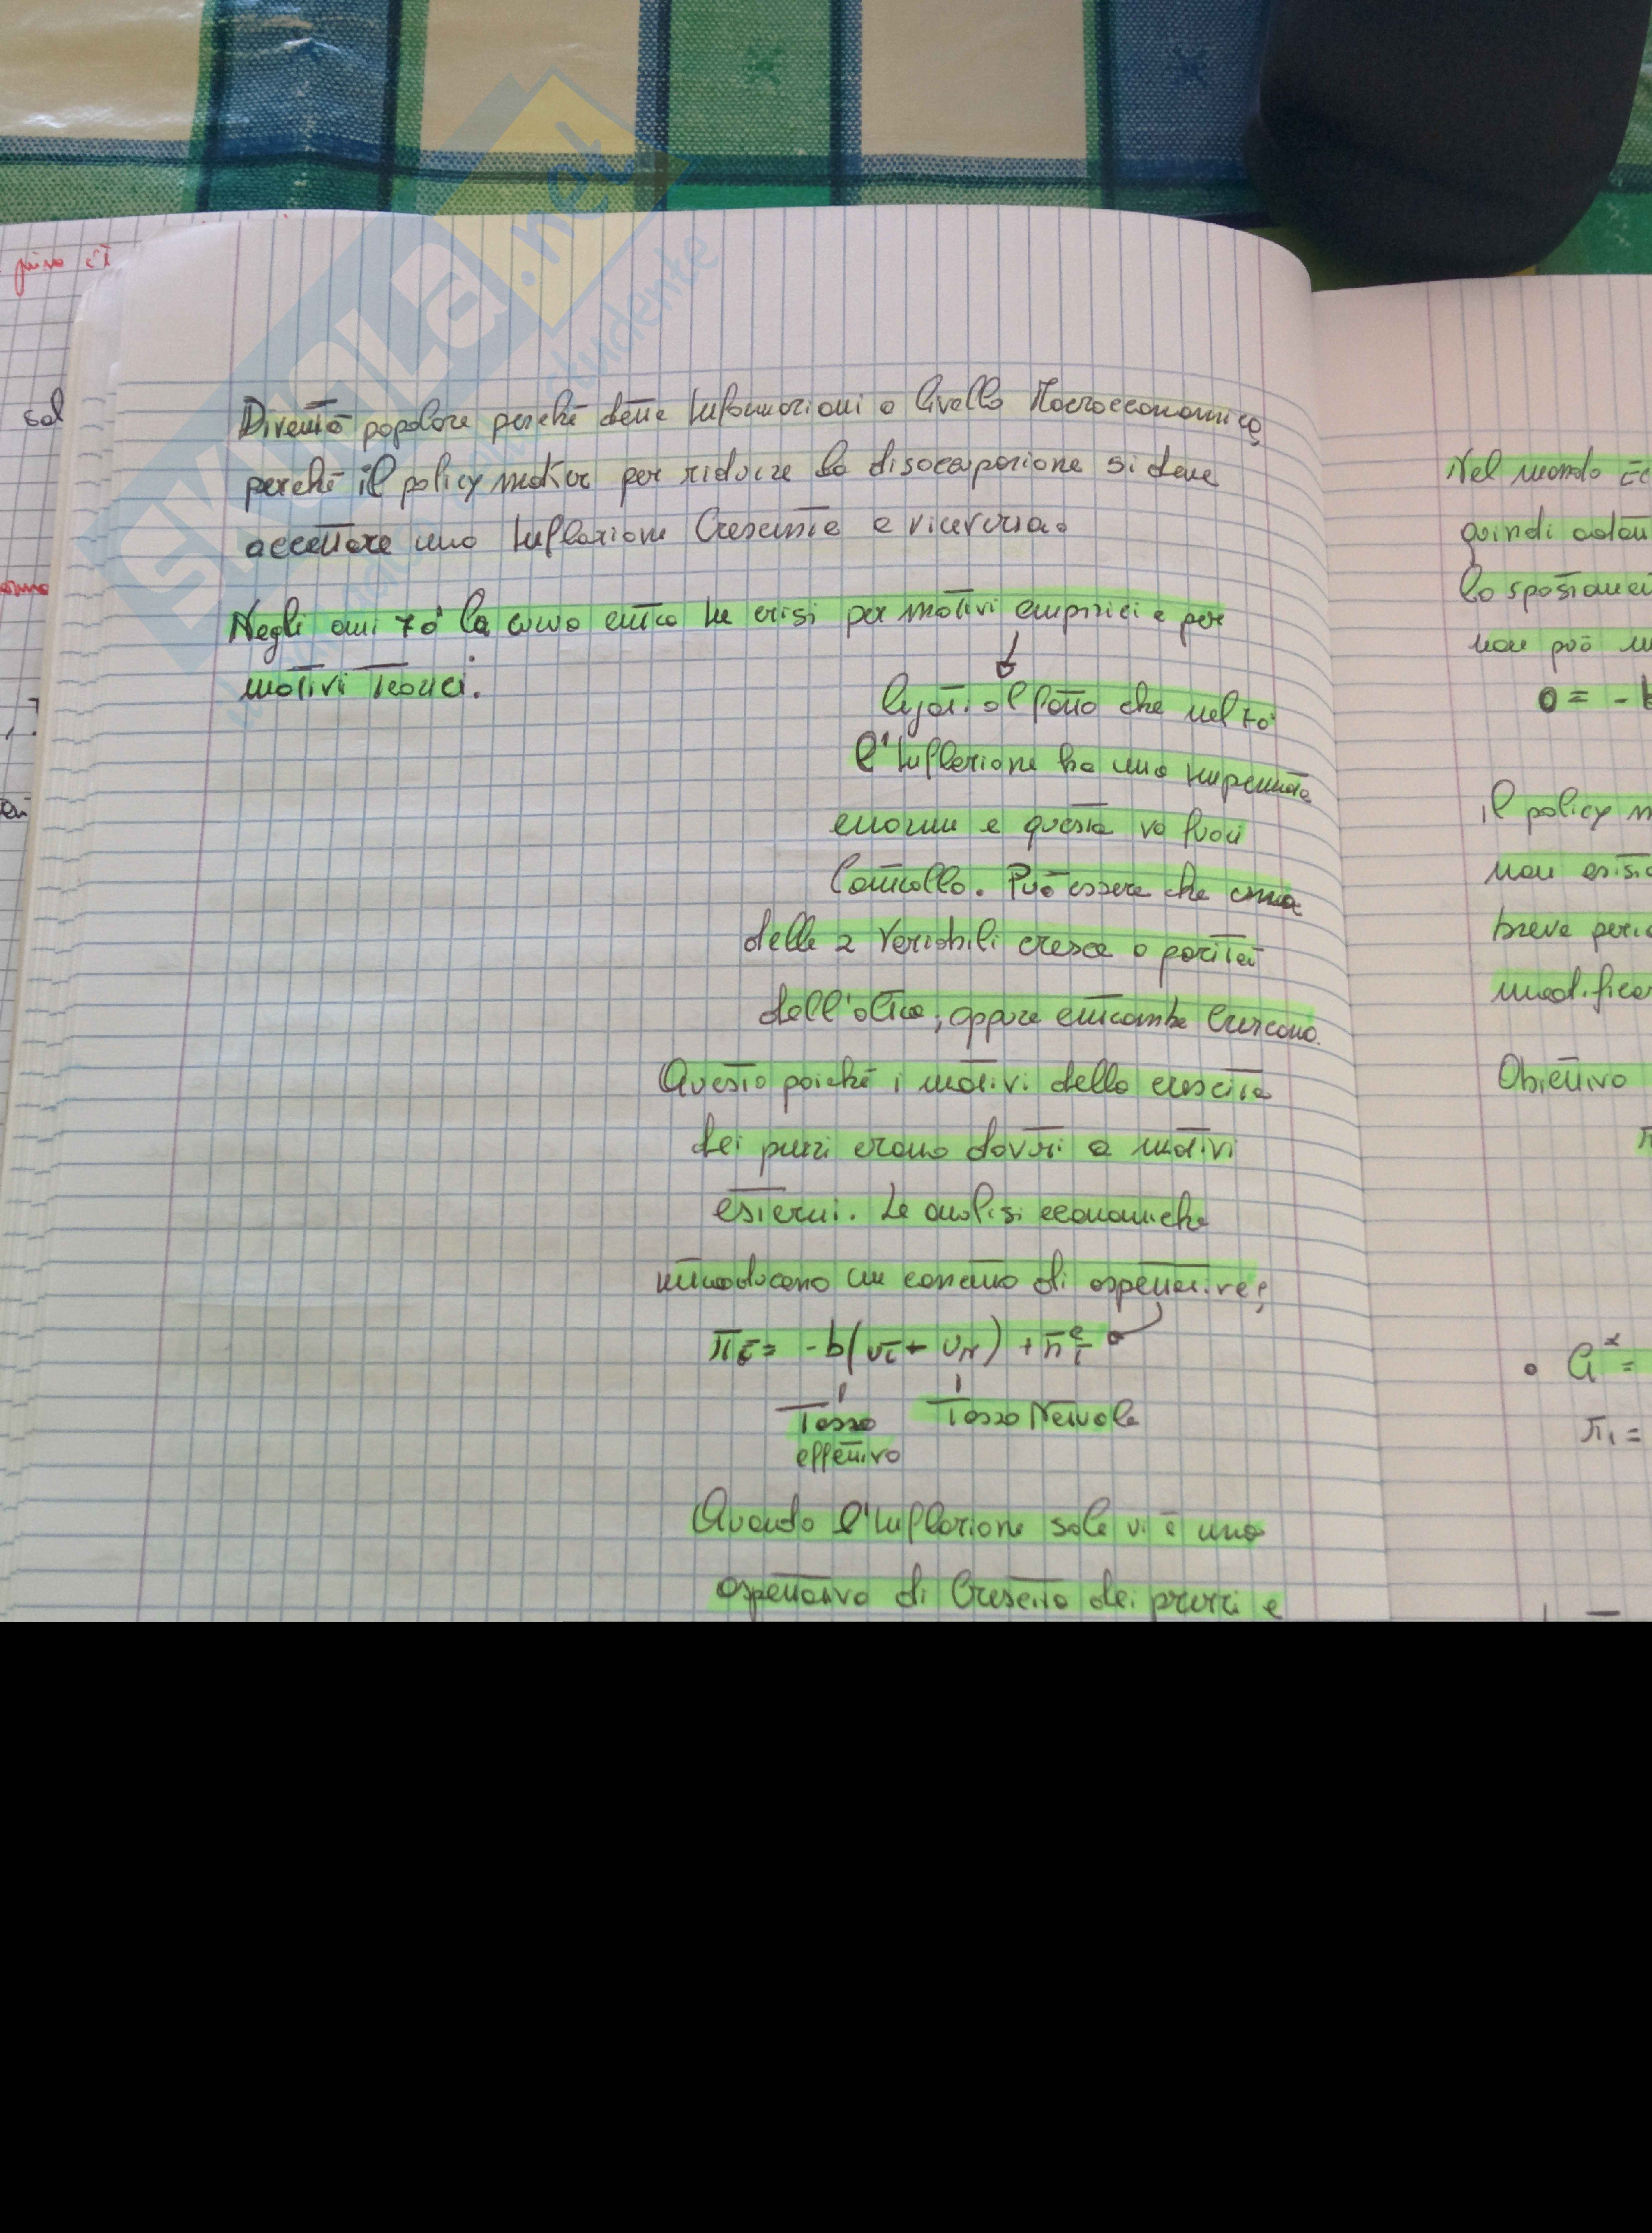 Diventò popolare perché dette Informazioni a livello Macroeconomico,
perché il policy maker per ridurre la disoccupazione si deve
accettare una Inflazione Crescente e viceversa.
Negli anni 70' la curva entra in crisi per motivi empirici e per
motivi Teorici.
legati al fatto che nel 70'
l'Inflazione ha una impennata
enorme e questa va fuori
Controllo. Può essere che una
delle 2 Variabili cresca a parità
dell'altra, oppure entrambe Crescono.
Questo poiché i motivi della crescita
dei prezzi erano dovuti a motivi
esterni. Le analisi economiche
introducono un concetto di aspettative;
πt = -b(ut - uN) + πet
Tasso effettivo
Tasso Naturale
Quando l'Inflazione sale vi è una
aspettativa di Crescita dei prezzi e
Nel mondo
quindi
lo spostamen
non può
0 = -b
il policy m
non esist
breve perio
modificar
Obiettivo
π
• a* =
π1 =
prima
sol
SKUOLA.net